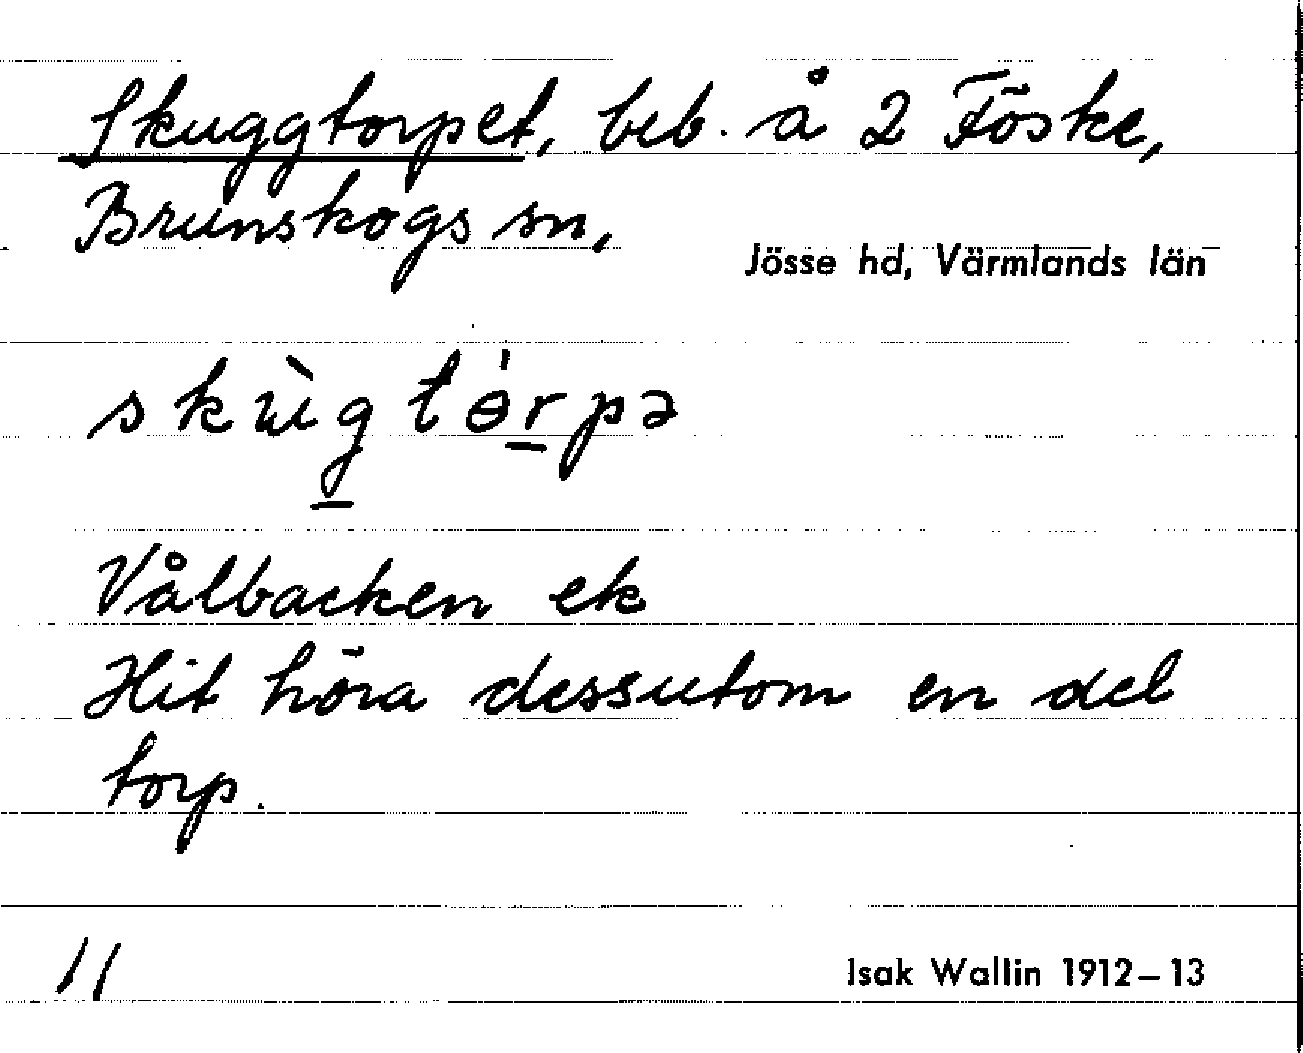 Skuggtorpet, beb. å 2 Föske,
Brunskogs sn,
Jösse hd, Värmlands län
skɯ̀g̱ tɵ́ṟpə
Vålbacken ek
Hit höra dessutom en del
torp.
11
Isak Wallin 1912–13